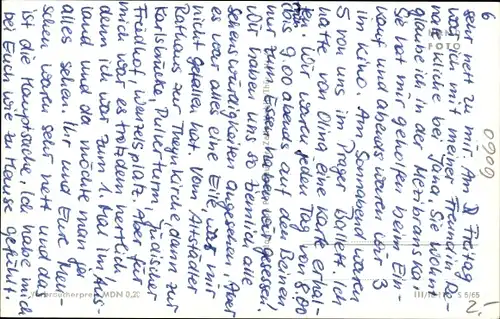 6
sehr nett zu mir. Am Freitag
war ich mit meiner Freundin Re-
nate kliche bei Jana. Sie wohnt
glaube ich in der Mezibranska.
Sie hat mir geholfen beim Ein-
kauf und abends waren wir 3
im Kino. Am Sonnabend waren
5 von uns im Prager Ballett. Ich
hatte von Oling eine Karte erhal-
ten. Wir waren jeden Tag von 8.00
bis 9.00 abends auf den Beinen
nur zum Essen haben wir gesessen.
Wir haben uns so ziemlich alle
Sehenswürdigkeiten angesehen. Aber
es war alles eine Eile, was mir
nicht gefallen hat. Vom Altstädter
Rathaus zur Theynkirche dann zur
Karlsbrücke, Pulverturm, jüdischer
Friedhof, Wenzelsplatz. Aber für
mich war es trotzdem herrlich
denn ich war zum 1. Mal im Aus-
land und da möchte man ja
alles sehen. Ihr und Eure
sehen waren sehr nett und das
ist die Hauptsache. Ich habe mich
bei Euch wie zu Hause gefühlt.
FOTO
0909
2.-
Verbraucherpreis MDN 0,20
III/18 S 5/65